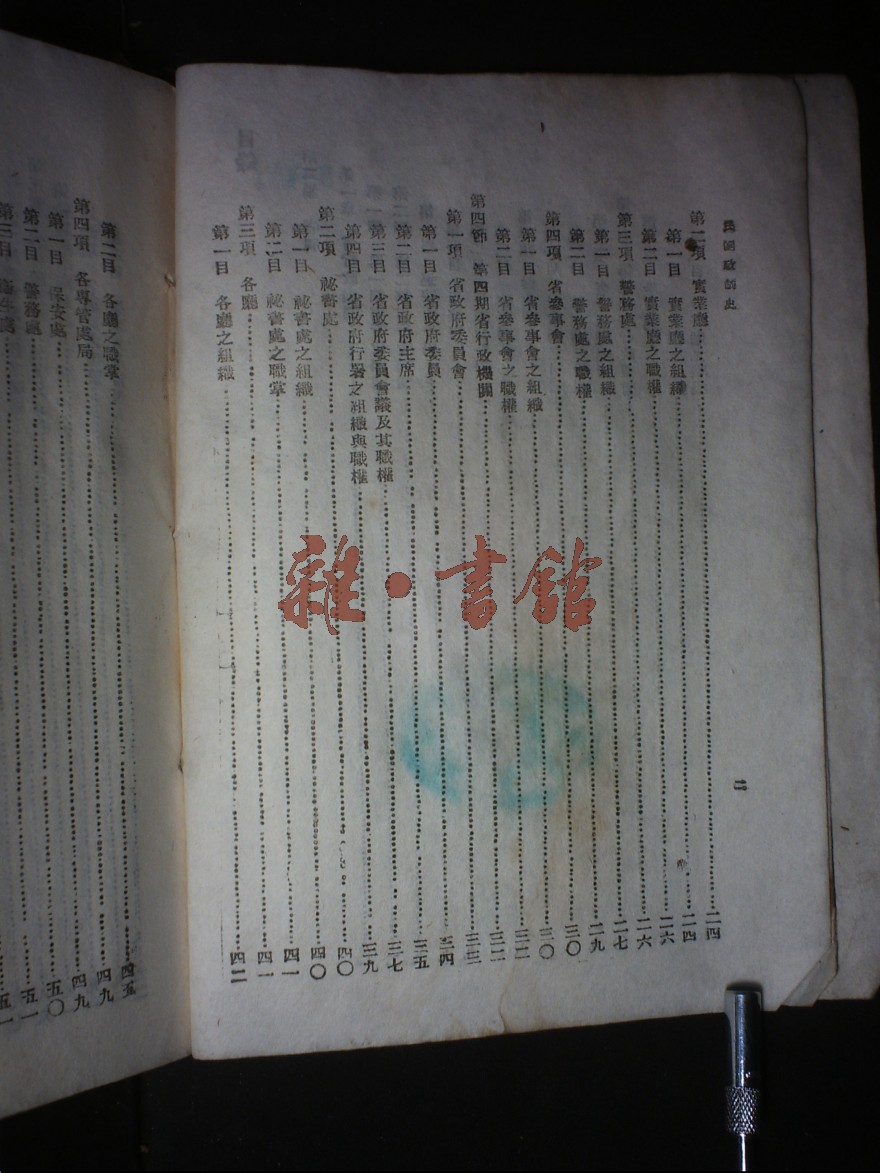 民國政制史
二
第二項 實業廳 二四
第一目 實業廳之組織 二四
第二目 實業廳之職權 二六
第三項 警務處 二六
第一目 警務處之組織 二七
第二目 警務處之職權 二九
第四項 省參事會 三〇
第一目 省參事會之組織 三〇
第二目 省參事會之職權 三二
第四節 第四期省行政機關 三二
第一項 省政府委員會 三三
第一目 省政府委員 三四
第二目 省政府主席 三五
第三目 省政府委員會議及其職權 三七
第四目 省政府行署之組織與職權 三九
第二項 祕書處 四〇
第一目 祕書處之組織 四〇
第二目 祕書處之職掌 四一
第三項 各廳 四一
第一目 各廳之組織 四二
第二目 各廳之職掌 四五
第四項 各專管處局 四九
第一目 保安處 四九
第二目 警務處 五〇
第三目 衛生處 五一
雜·書館